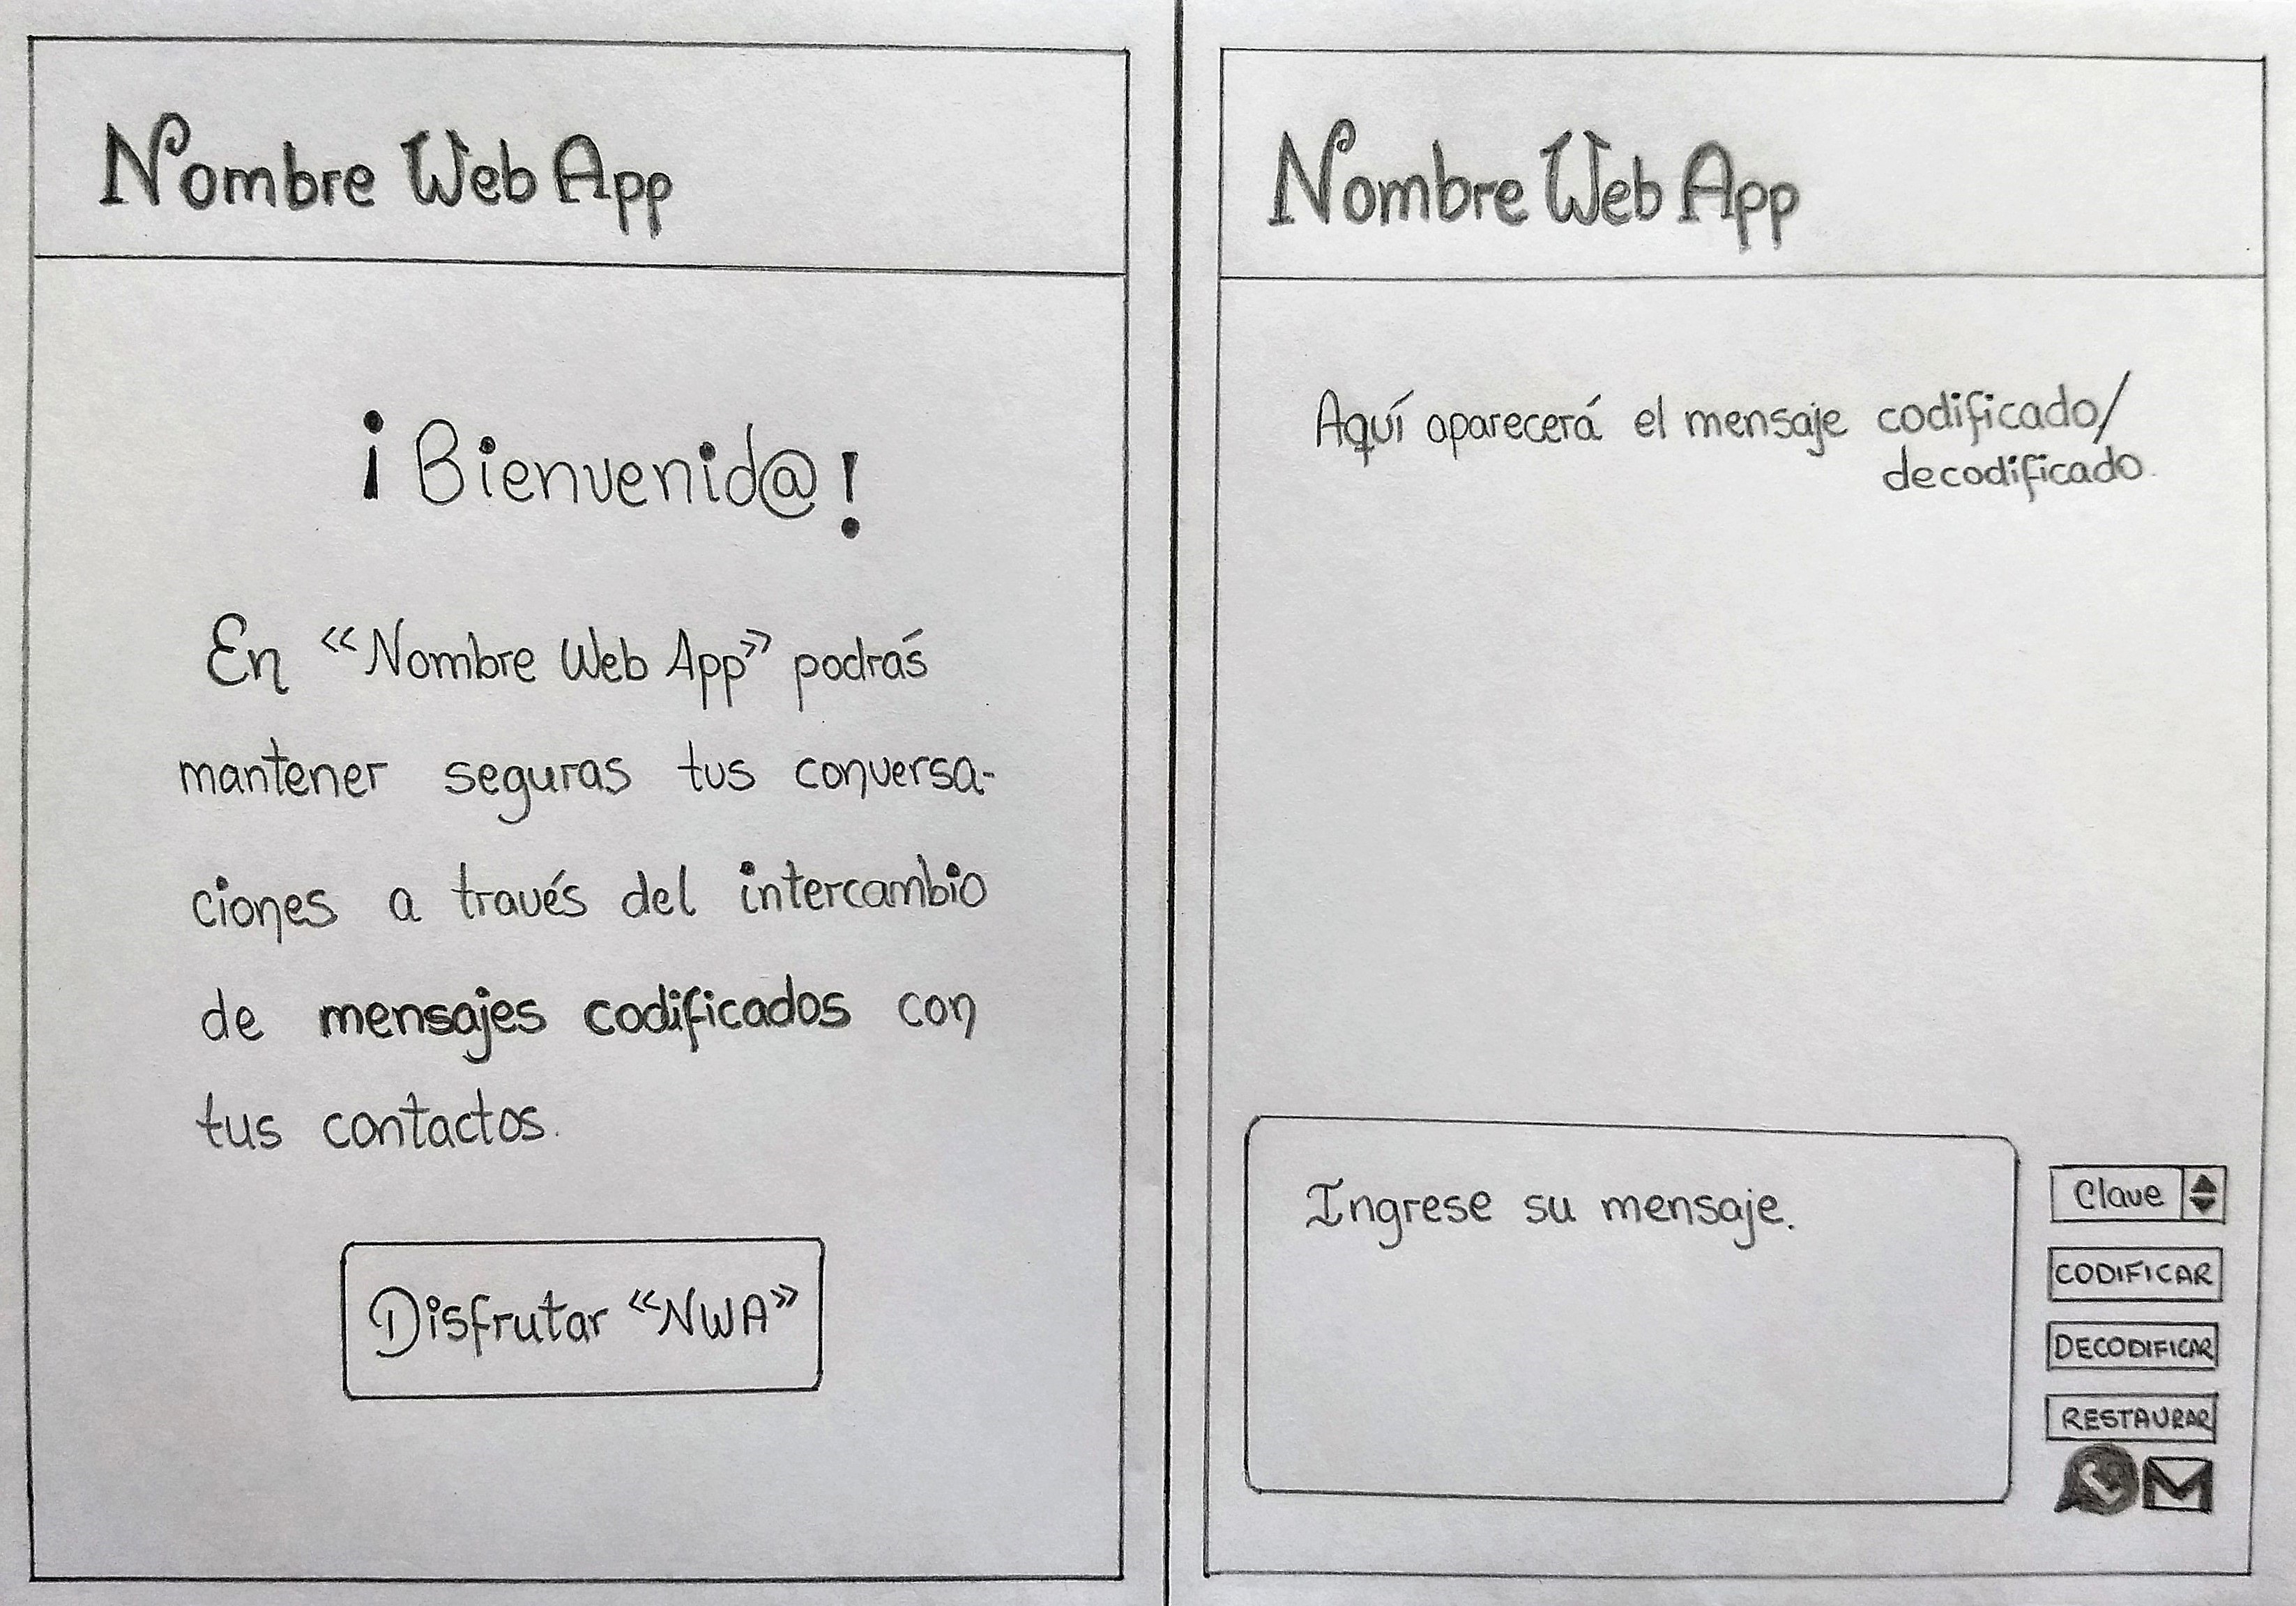 Nombre Web App
¡Bienvenid@!
En «Nombre Web App» podrás
mantener seguras tus conversa-
ciones a través del intercambio
de mensajes codificados con
tus contactos.
Disfrutar «NWA»
Nombre Web App
Aquí aparecerá el mensaje codificado/
decodificado.
Ingrese su mensaje.
Clave
CODIFICAR
DECODIFICAR
RESTAURAR